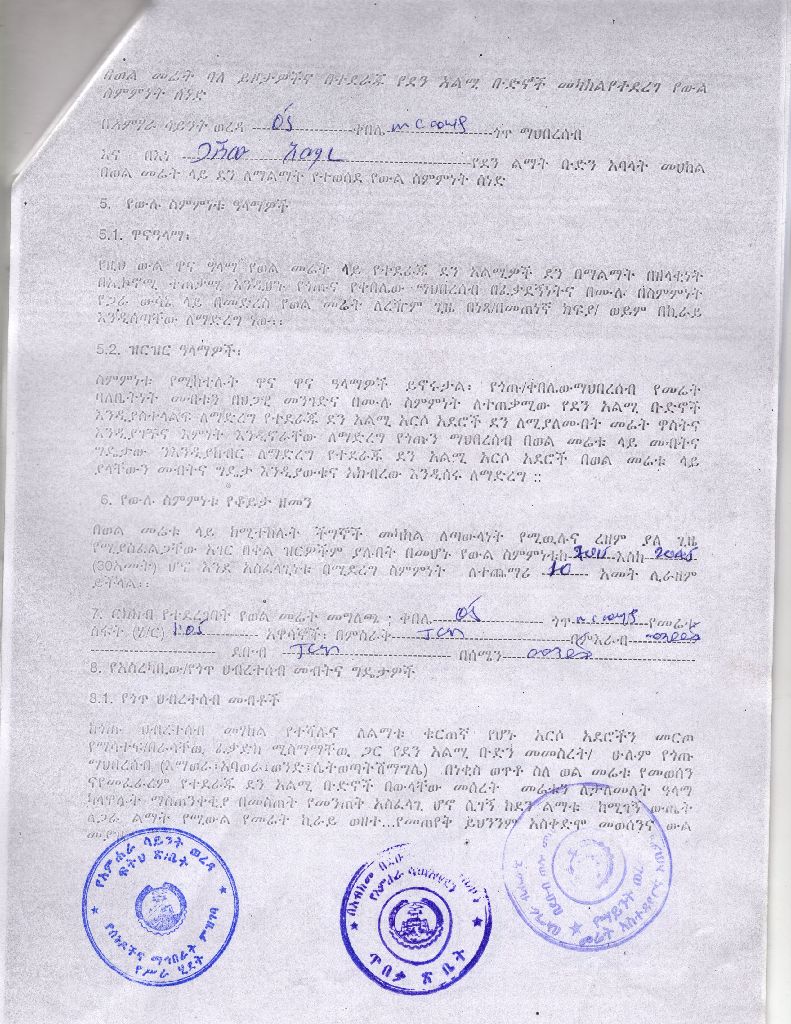 በወል መሬት ባለ ይዞታዎችና በተደራጁ የደን አልሚ ቡድኖች መካከል የተደረገ የውል
ስምምነት ሰነድ
በአምሃራ ሳይንት ወረዳ 05 ቀበሌ ጎጥ ማህበረሰብ
እና በእነ የደን ልማት ቡድን አባላት መሀከል
በወል መሬት ላይ ደን ለማልማት የተወሰደ የውል ስምምነት ሰነድ
5. የውሉ ስምምነቱ ዓላማዎች
5.1. ዋናዓላማ፡
የዚህ ውል ዋና ዓላማ የወል መሬት ላይ የተደራጁ ደን አልሚዎች ደን በማልማት በዘላቂነት
በኢኮኖሚ ተጠቃሚ እንዲሆኑ የጎጡና የቀበሌው ማህበረሰብ በፈቃደኝነትና በሙሉ በስምምነት
የጋራ ውሳኔ ላይ በመድረስ የወል መሬት ለረዥም ጊዜ በነጻ/በመጠነኛ ክፍያ/ ወይም በኪራይ
እንዲሰጣቸው ለማድረግ ነው፡፡
5.2. ዝርዝር ዓላማዎች፡
ስምምነቱ የሚከተሉት ዋና ዋና ዓላማዎች ይኖሩታል፡ የጎጡ/ቀበሌውማህበረሰብ የመሬት
ባለቤትነት መብቱን በህጋዊ መንገድና በሙሉ ስምምነት ለተጠቃሚው የደን አልሚ ቡድኖች
እንዲያስተላልፍ ለማድረግ የተደራጁ ደን አልሚ አርሶ አደሮች ደን ለሚያለሙበት መሬት ዋስትና
እንዲያገኙና እምነት እንዲኖራቸው ለማድረግ የጎጡን ማህበረሰብ በወል መሬቱ ላይ መብትና
ግዴታው እንዲያከብር ለማድረግ የተደራጁ ደን አልሚ አርሶ አደሮች በወል መሬቱ ላይ
ያላቸውን መብትና ግዴታ እንዲያውቁና አክብረው እንዲሰሩ ለማድረግ ::
6. የውሉ ስምምነቱ የቆይታ ዘመን
በወል መሬቱ ላይ ከሚተከሉት ችግኞች መካከል ለጣውላነት የሚዉሉና ረዘም ያለ ጊዜ
የሚያስፈልጋቸው አገር በቀል ዝርዎችም ያሉበት በመሆኑ የውል ስምምነቱከ 2015 እስከ 2045
(30አመት) ሆኖ እንደ አስፈላጊነቱ በሚደረግ ስምምነት ለተጨማሪ 10 አመት ሊራዘም
ይችላል፡፡
7. ርክክብ የተደረገበት የወል መሬት መግለጫ ; ቀበሌ 05 ጎጥ የመሬቱ
ስፋት (ሄ/C) 1.05 አዋሳኞች፡ በምስራቅ ገደል በምእራብ መንገድ
ደቡብ ገደል በሰሜን መንገድ
8. የአስረካቢው/የጎጥ ህብረተሰብ መብትና ግዴታዎች
8.1. የጎጥ ህብረተሰብ መብቶች
ከጎጡ ህብረተሰብ መሃከል የተሻሉና ለልማቱ ቁርጠኛ የሆኑ አርሶ አደሮችን መርጦ
ጋር የደን አልሚ ቡድን መመስረት/ ሁሉም የጎጡ
ማህበረሰብ በነቂስ ወጥቶ ስለ ወል መሬቱ የመወሰን
የተደራጁ ደን አልሚ ቡድኖች በውላቸው መሰረት መሬቱን ለታለመለት ዓላማ
ካላዋሉት ማስጠንቀቂያ በመስጠት የመንጠቅ አስፈላጊ ሆኖ ሲገኝ ከደን ልማቱ ከሚገኝ ውጤት
ለጋራ ልማት የሚውል የመሬት ኪራይ ወዘተ...የመጠየቅ ይህንንም አስቀድሞ መወሰንና ውል
የአምሐራ ሳይንት ወረዳ
ፍትህ ጽ/ቤት
የሰነዶችና ማኅበራት ምዝገባ
የሥራ ሂደት
ጥበቃ ጽ/ቤት